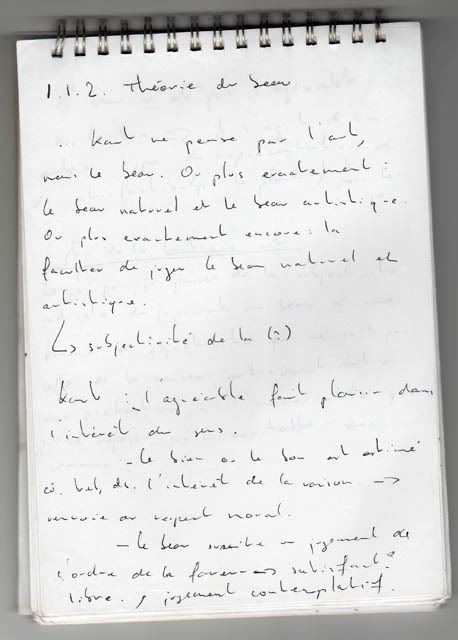 1.1.2. théorie du beau.
... Kant ne pense pas l'art,
mais le beau. Ou plus exactement :
le beau naturel et le beau artistique.
Ou plus exactement encore : la
faculté de juger le beau naturel et
artistique.
↳ subjectivité de la (?)
Kant : - l'agréable fait plaisir dans
l'intérêt du sens.
- le bien ou le bon est estimé
co. tel, ds. l'intérêt de la raison →
renvoie au respect moral.
- le beau suscite un jugement de
l'ordre de la faveur → satisfact°
libre. jugement contemplatif.